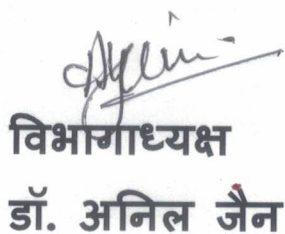 विभागाध्यक्ष
डॉ. अनिल जैन